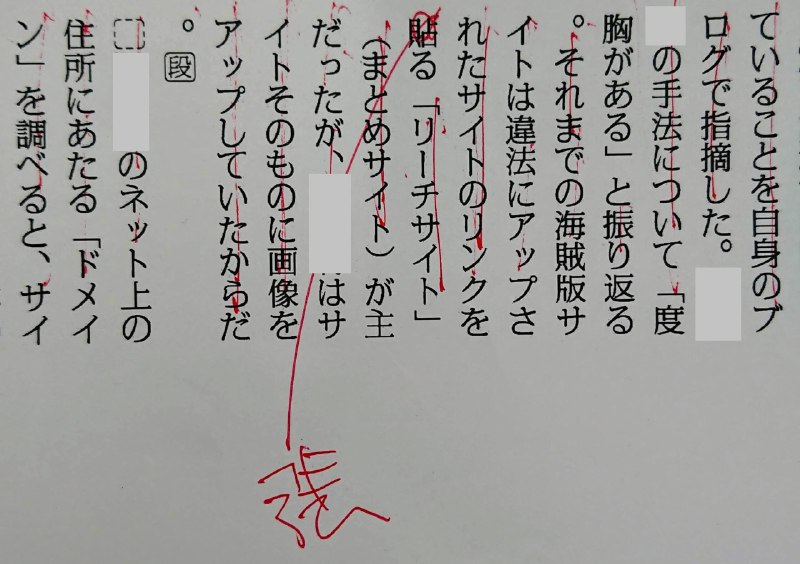 ていることを自身のブ
ログで指摘した。
の手法について「度
胸がある」と振り返る
。それまでの海賊版サ
イトは違法にアップさ
れたサイトのリンクを
貼る「リーチサイト」
（まとめサイト）が主
だったが、はサ
イトそのものに画像を
アップしていたからだ
。段
のネット上の
住所にあたる「ドメイ
ン」を調べると、サイ
張